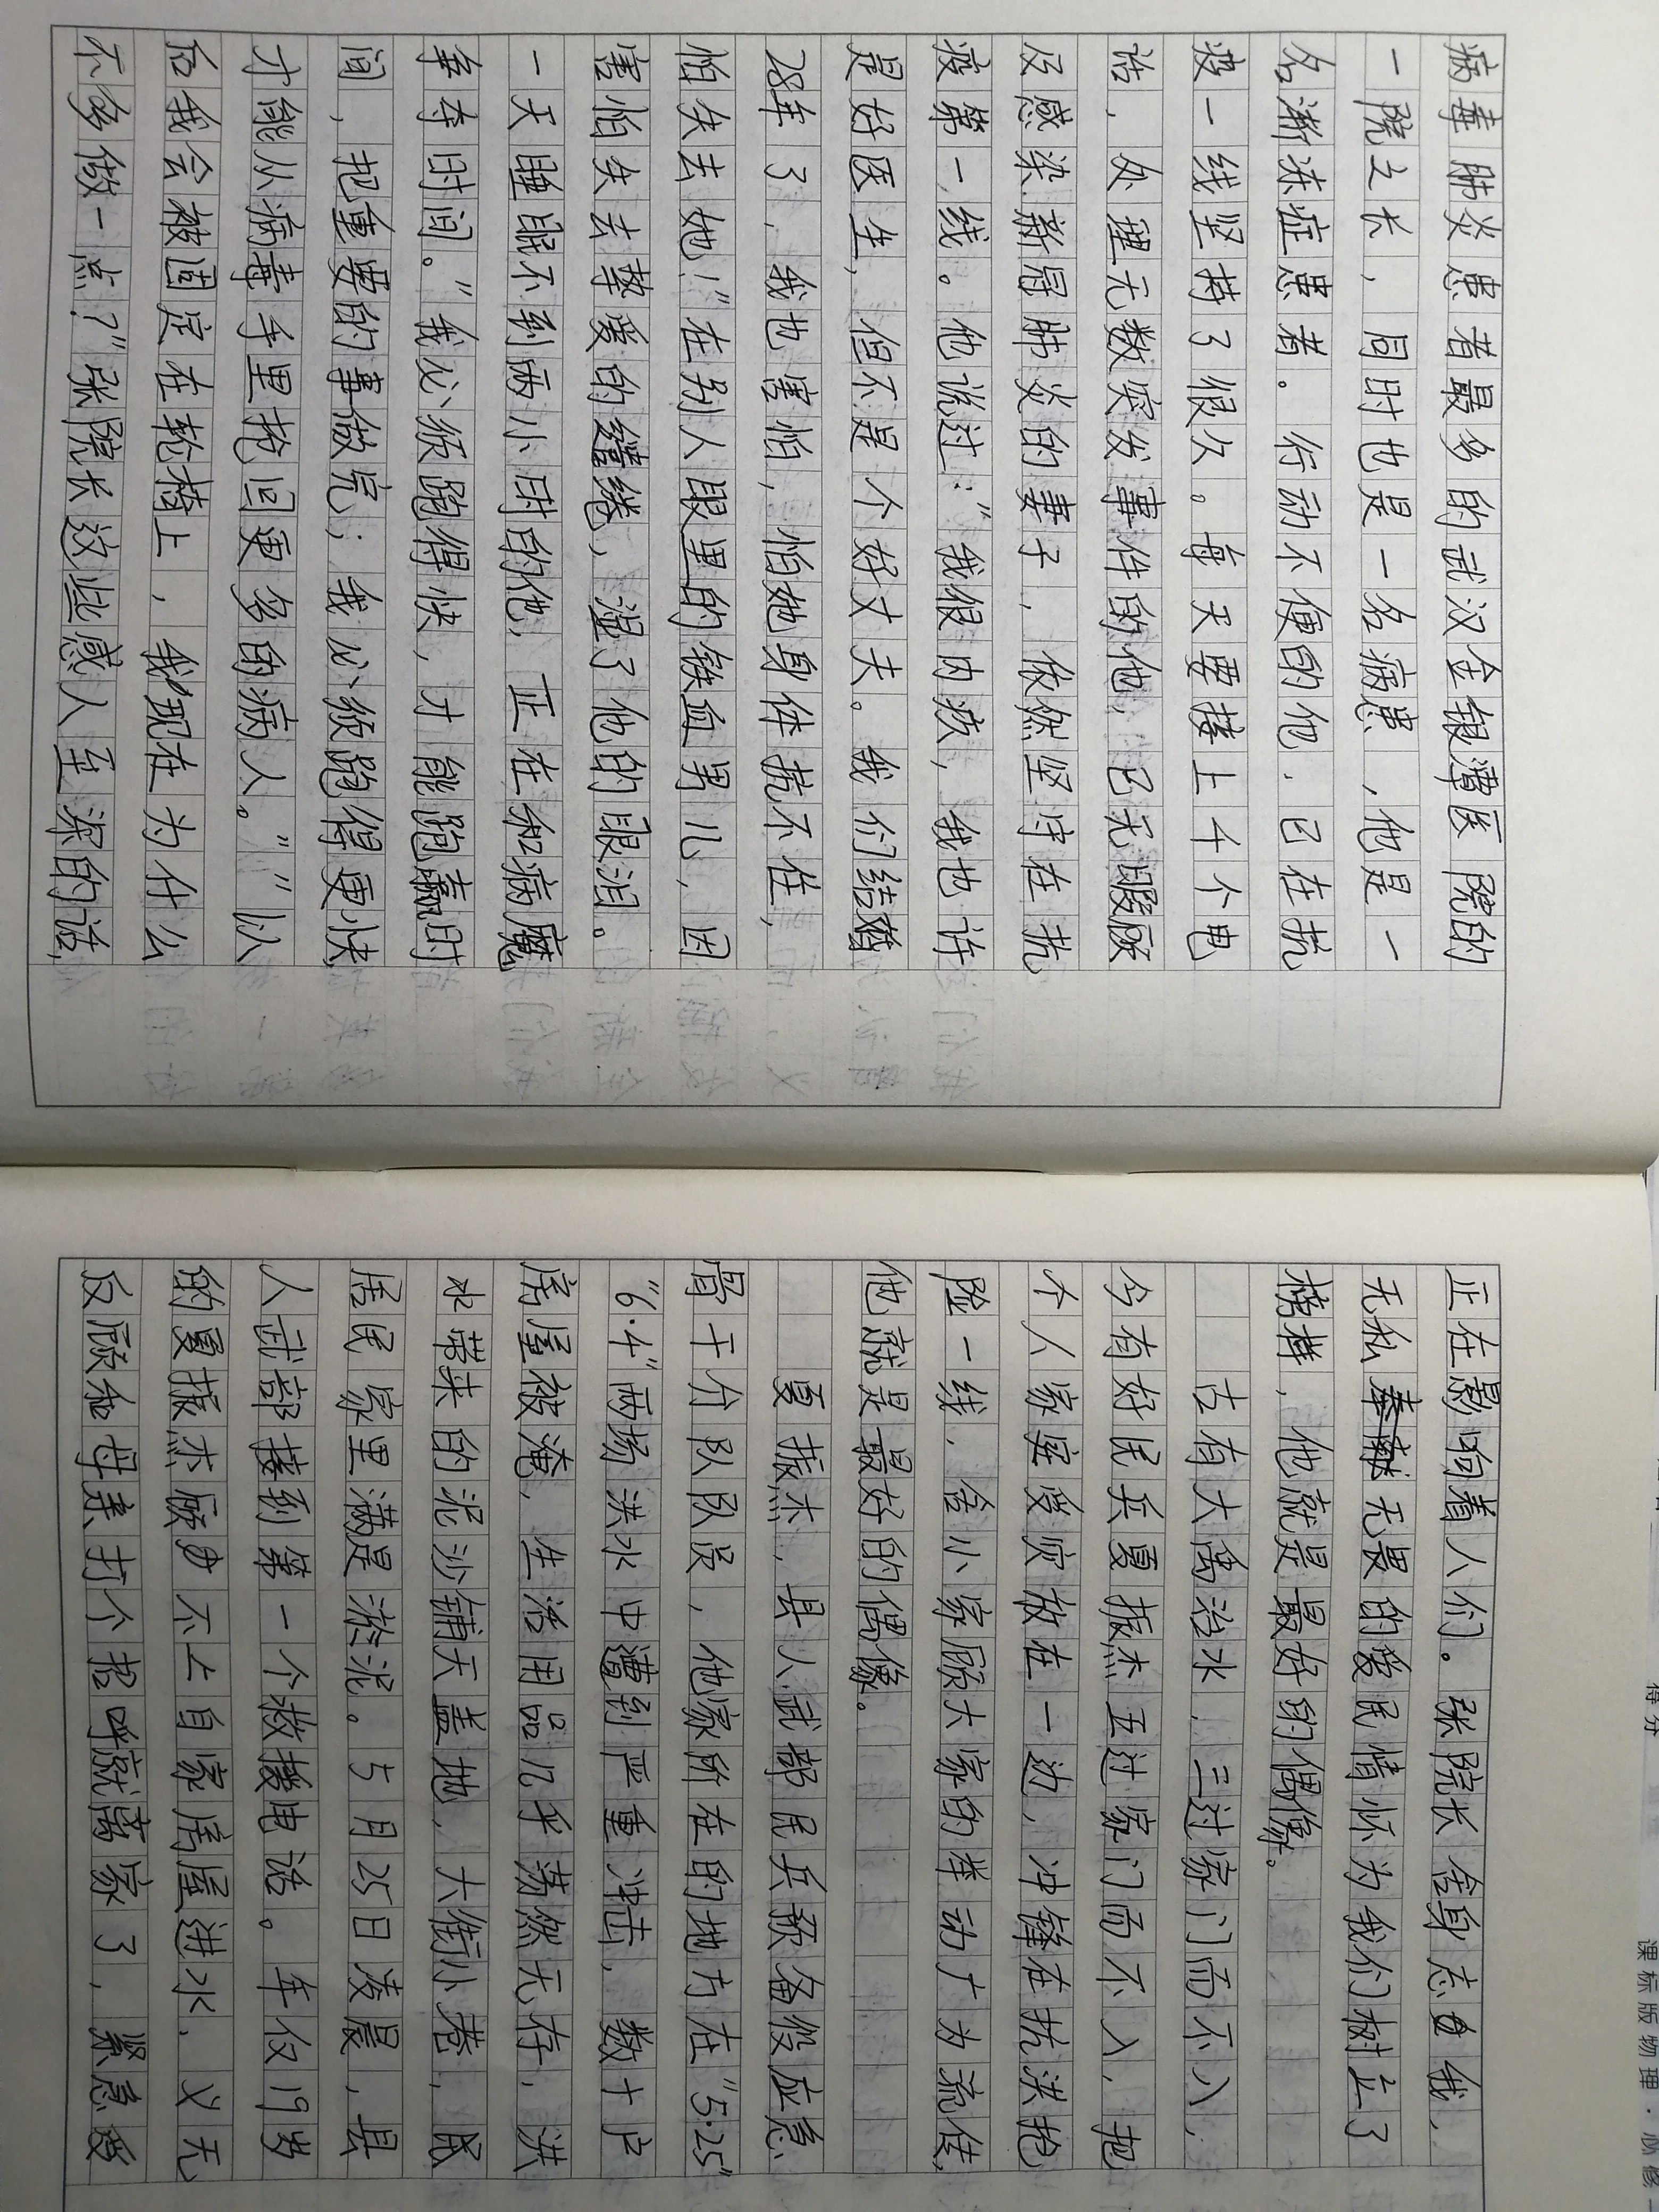 病毒肺炎患者最多的武汉金银潭医院的
一院之长，同时也是一名病患，他是一
名渐冻症患者。行动不便的他，已在抗
疫一线坚持了很久。每天要接上千个电
话，处理无数突发事件的他，已无暇顾
及感染新冠肺炎的妻子，依然坚守在抗
疫第一线。他说过：“我很内疚，我也许
是好医生，但不是个好丈夫。我们结婚
28年了，我也害怕，怕她身体抗不住，
怕失去她！”在别人眼里的铁血男儿，因
害怕失去挚爱的缱绻，湿了他的眼泪。
一天睡眠不到两小时的他，正在和病魔
争夺时间。“我必须跑得快，才能跑赢时
间，把重要的事做完；我必须跑得更快
才能从病毒手里抢回更多的病人。”“以
后我会被固定在轮椅上，我现在为什么
不多做一点？”张院长这些感人至深的话，
正在影响着人们。张院长舍身忘我，
无私无畏的爱民情怀为我们树立了
榜样，他就是最好的偶像。
古有大禹治水，三过家门而不入，
今有好民兵夏振杰五过家门而不入，把
个人家庭受灾放在一边，冲锋在抗洪抢
险一线，舍小家顾大家的举动广为流传，
他就是最好的偶像。
夏振杰，县人武部民兵预备役应急
骨干分队队员，他家所在的地方在“5·25”
“6·4”两场洪水中遭到严重冲击，数十户
房屋被淹，生活用品几乎荡然无存，洪
水带来的泥沙铺天盖地，大街小巷，民
居民家里满是淤泥。5月25日凌晨，县
人武部接到第一个救援电话。年仅19岁
的夏振杰顾不上自家房屋进水，义无
反顾和母亲打个招呼就离家了，紧急受
得分
课标版物理·必修一